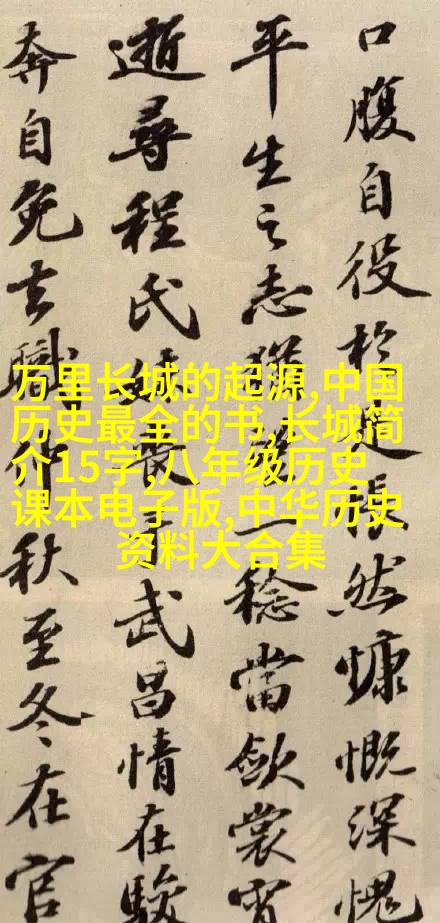 口腹自役於是悵然慷慨深愧
平生之志猶望一稔當歛裳宵
逝尋程氏妹喪于武昌情在駿
奔自免去職仲秋至冬在官
万里长城的起源,中国
历史最全的书,长城简
介15字,八年级历史
课本电子版,中华历史
资料大合集